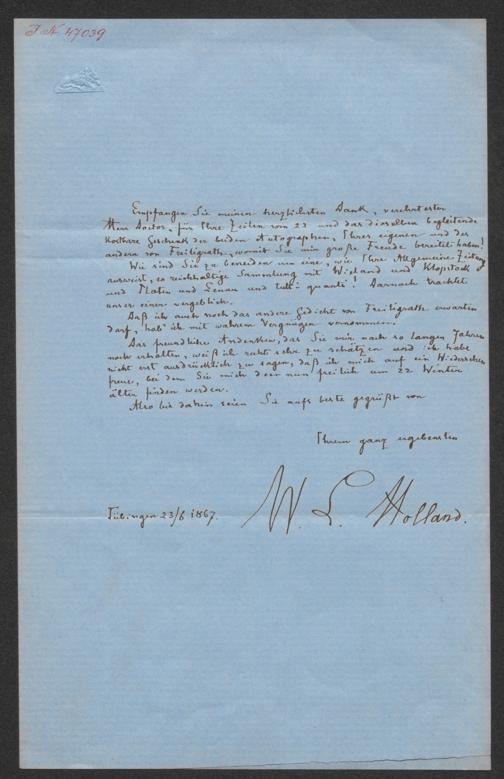 J. N. 47039
Empfangen Sie meinen herzlichsten Dank, verehrtester
Herr Doctor, für Ihre Zeilen vom 22 und das dieselben begleitende
kostbare Geschenk der beiden Autographen, Ihrer eigenen und der
andern von Freiligrath, womit Sie mir große Freude bereitet haben!
Wie sind Sie zu beneiden um eine, wie Ihre Allgemeine Zeitung
ausweist, so reichhaltige Sammlung mit Wieland und Klopstock
und Platen und Lenau und tutti quanti! Darnach trachtet
unser einer vergeblich.
Daß ich auch noch das andere Gedicht von Freiligrath erwarten
darf, hab' ich mit wahrem Vergnügen vernommen.
Das freundliche Andenken, das Sie mir nach so langen Jahren
noch erhalten, weiß ich recht sehr zu schätzen und ich habe
nicht erst ausdrücklich zu sagen, daß ich mich auf ein Wiedersehen
freue, bei dem Sie mich denn nun freilich um 22 Winter
älter finden werden.
Also bis dahin seien Sie aufs beste gegrüßt von
Ihrem ganz ergebensten
Tübingen 23/6 1867.
W. L. Holland.